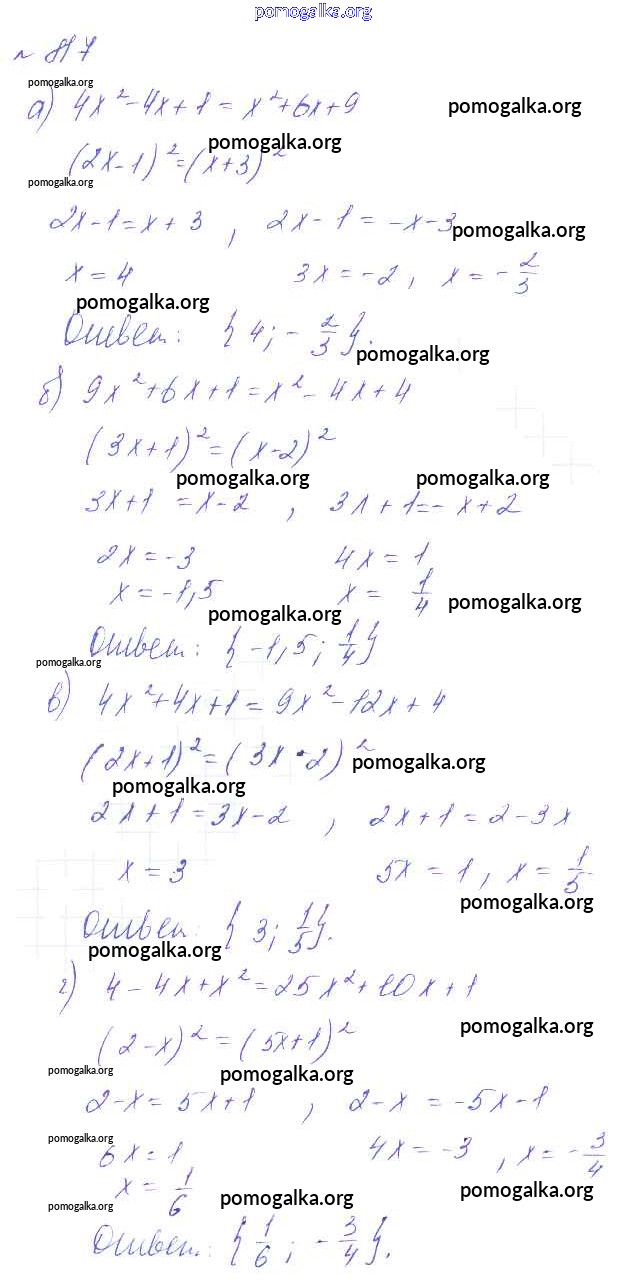 pomogalka.org
№ 817
pomogalka.org
а) 4x² - 4x + 1 = x² + 6x + 9 pomogalka.org
(2x - 1)² = (x + 3)² pomogalka.org
pomogalka.org
2x - 1 = x + 3 , 2x - 1 = -x - 3 pomogalka.org
x = 4 3x = -2, x = -2/3
pomogalka.org
Ответ: {4; -2/3}.
pomogalka.org
б) 9x² + 6x + 1 = x² - 4x + 4
(3x + 1)² = (x - 2)²
pomogalka.org pomogalka.org
3x + 1 = x - 2 , 3x + 1 = -x + 2
2x = -3 4x = 1
x = -1,5 x = 1/4 pomogalka.org
pomogalka.org
Ответ: {-1,5; 1/4}
pomogalka.org
в) 4x² + 4x + 1 = 9x² - 12x + 4
(2x + 1)² = (3x - 2)² pomogalka.org
pomogalka.org
2x + 1 = 3x - 2 , 2x + 1 = 2 - 3x
x = 3 5x = 1, x = 1/5
pomogalka.org
Ответ: {3; 1/5}.
pomogalka.org
г) 4 - 4x + x² = 25x² + 10x + 1
(2 - x)² = (5x + 1)² pomogalka.org
pomogalka.org pomogalka.org
2 - x = 5x + 1 , 2 - x = -5x - 1
pomogalka.org
6x = 1 4x = -3 , x = -3/4
x = 1/6 pomogalka.org pomogalka.org
pomogalka.org
Ответ: {1/6; -3/4}.